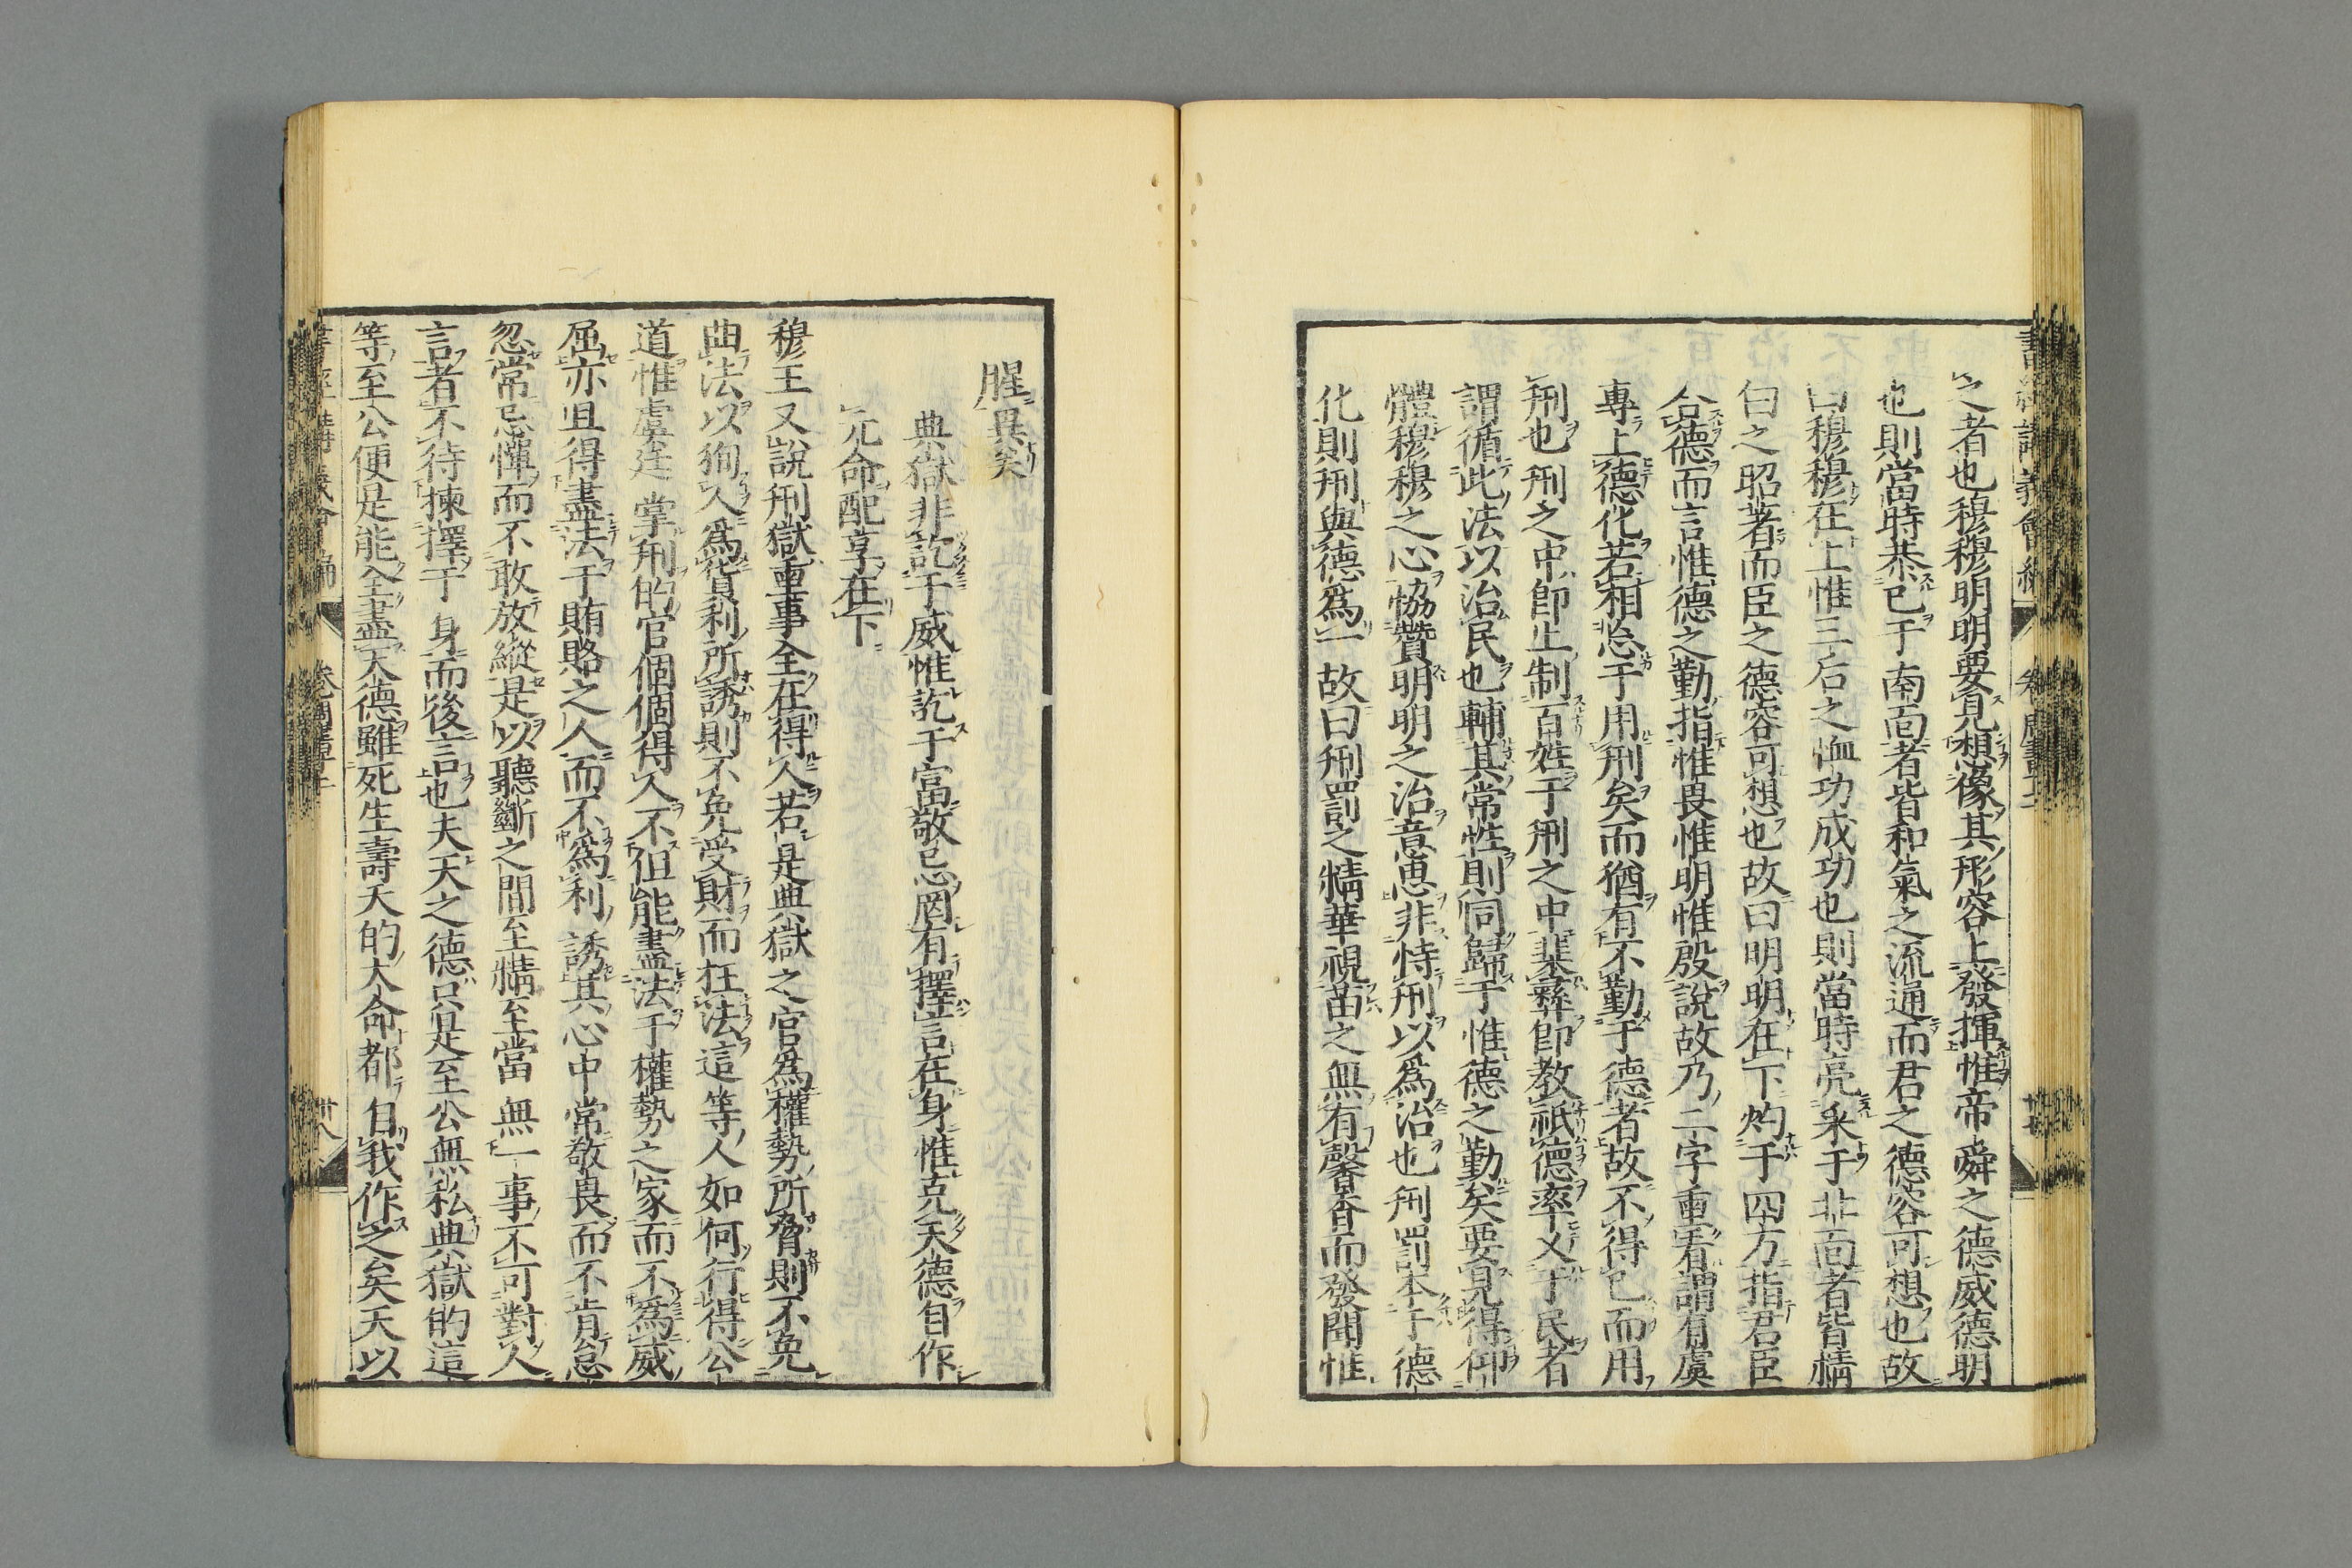 之者也穆穆明明要見想像其形容上發揮惟帝舜之德威德明
也則當時恭已于南面者皆和氣之流通而君之德容可想也故
曰穆穆在上惟三后之恤功成功也則當時亮采于非面者皆精
白之昭著而臣之德容可想也故曰明明在下灼于四方指君臣
合德而言惟德之勤指惟畏惟明惟殷說故乃二字重看謂有虞
專上德化若相怂于用刑矣而猶有不勤于德者故不得已而用
刑也刑之中卽上制百姓于刑之中棐彝卽教祗德率乂于民者
謂循此法以治民也輔其常性則同歸于惟德之勤矣要見得仰
體穆穆之心恊贊明明之治意惠非恃刑以爲治也刑罰本于德
化則刑與德爲一故曰刑罰之精華視苗之無有馨香而發聞惟
腥異矣
典獄非訖于威惟訖于富敬忌罔有擇言在身惟克天德自作
元命配享在下
穆王又說刑獄重事全在得人若是典獄之官爲權勢所脅則不免
曲法以狥人爲貨利所誘則不免受財而枉法這等人如何行得公
道惟虞廷掌刑的官個個得人不但能盡法于權勢之家而不爲威
屈亦且得盡法于賄賂之人而不爲利誘其心中常敬畏而不肯怠
忽常忌憚而不敢放縱是以聽斷之間至精至當無一事不可對人
言者不待揀擇于身而後言也夫天之德只是至公無私典獄的這
等至公便是能全盡天德雖死生壽夭的大命都自我作之矣天以